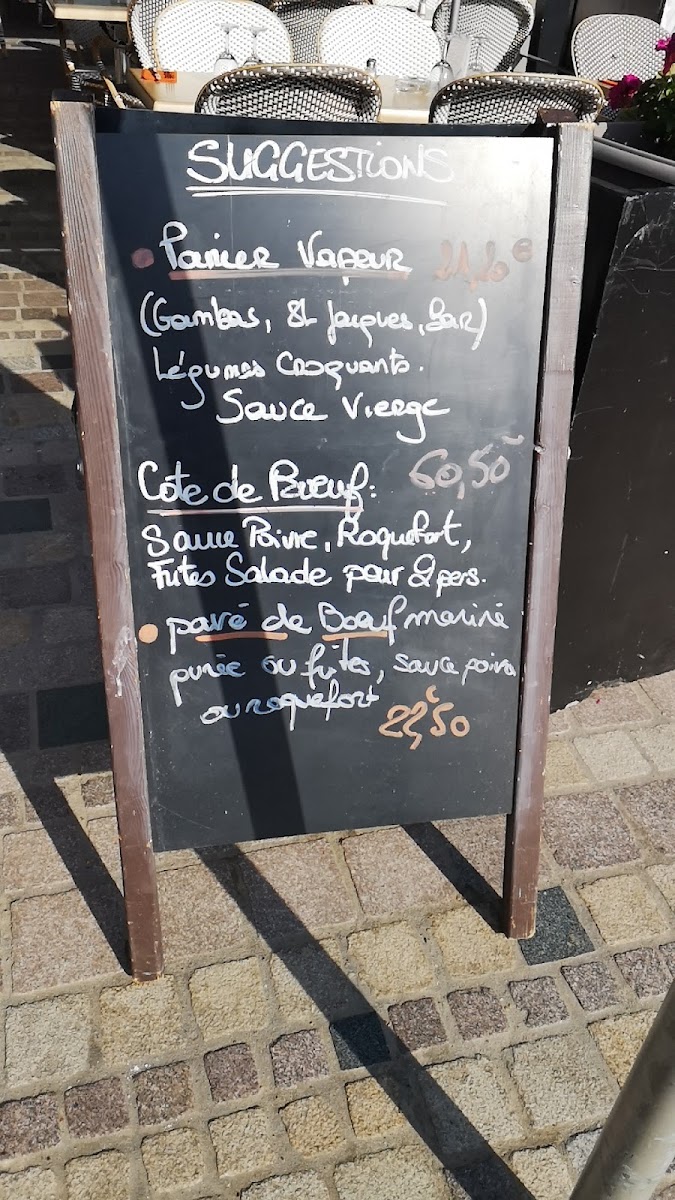 SUGGESTIONS
Panier Vapeur 21,20€
(Gambas, St Jacques, Bar)
Légumes Croquants.
Sauce Vierge
Cote de Bœuf: 60,50
Sauce Poivre, Roquefort,
Frites Salade pour 2 pers.
pavé de Boeuf mariné
purée ou frites, sauce poivre
ou roquefort
22€50